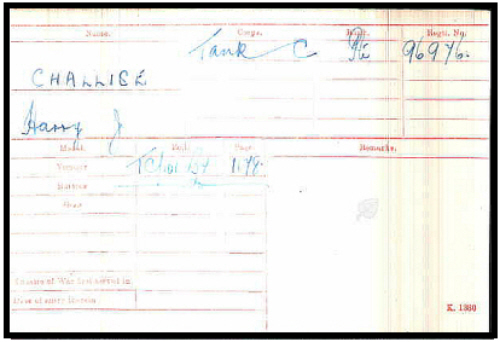 Name. Corps. Rank. Regtl. No.
Tank C Pte 96976.
CHALLISE
Harry J
Medal. Roll. Page. Remarks.
Victory 1178.
British
Star
Theatre of War first served in
Date of entry therein
K. 1380